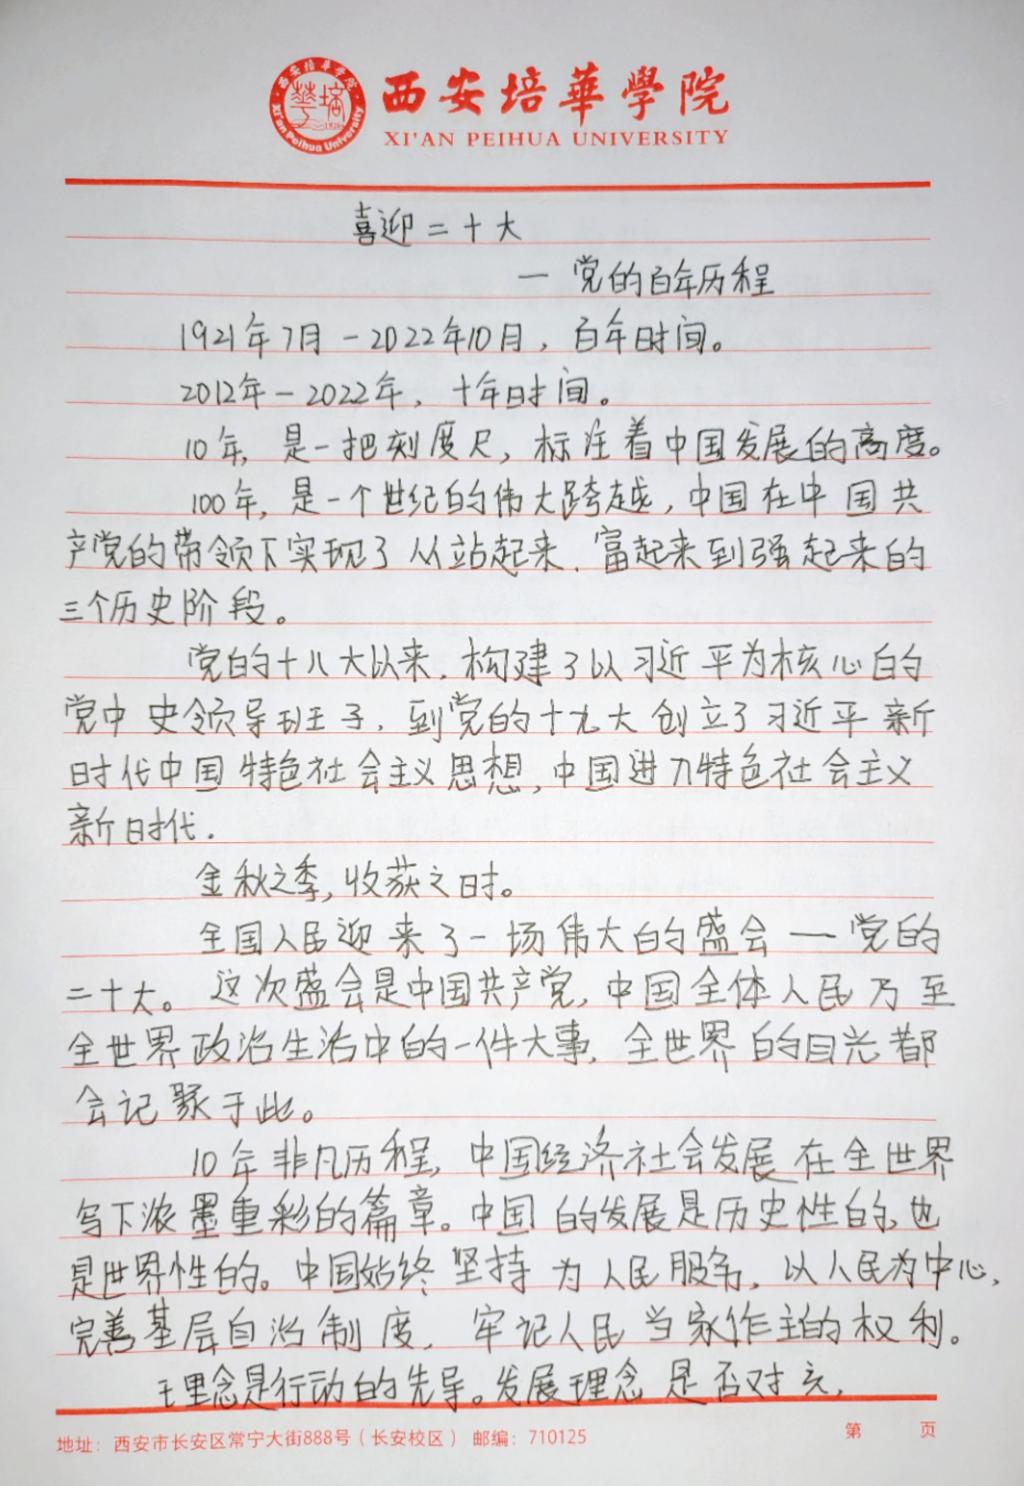 西安培華學院
XI'AN PEIHUA UNIVERSITY
喜迎二十大
—党的百年历程
1921年7月－2022年10月，百年时间。
2012年－2022年，十年时间。
10年，是一把刻度尺，标注着中国发展的高度。
100年，是一个世纪的伟大跨越，中国在中国共
产党的带领下实现了从站起来、富起来到强起来的
三个历史阶段。
党的十八大以来，构建了以习近平为核心的
党中史领导班子，到党的十九大创立了习近平新
时代中国特色社会主义思想，中国进入特色社会主义
新时代.
金秋之季，收获之时。
全国人民迎来了一场伟大的盛会—党的
二十大。这次盛会是中国共产党，中国全体人民乃至
全世界政治生活中的一件大事，全世界的目光都
会记聚于此。
10年非凡历程，中国经济社会发展在全世界
写下浓墨重彩的篇章。中国的发展是历史性的，也
是世界性的。中国始终坚持为人民服务，以人民为中心，
完善基层自治制度，牢记人民当家作主的权利。
理念是行动的先导。发展理念是否对亥，
地址：西安市长安区常宁大街888号（长安校区） 邮编：710125
第 页